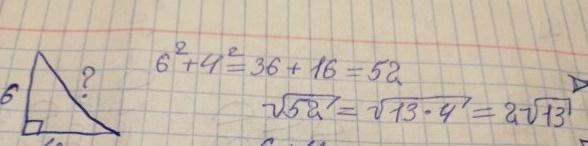 6 ?
6² + 4² = 36 + 16 = 52
√52 = √13 · 4 = 2√13